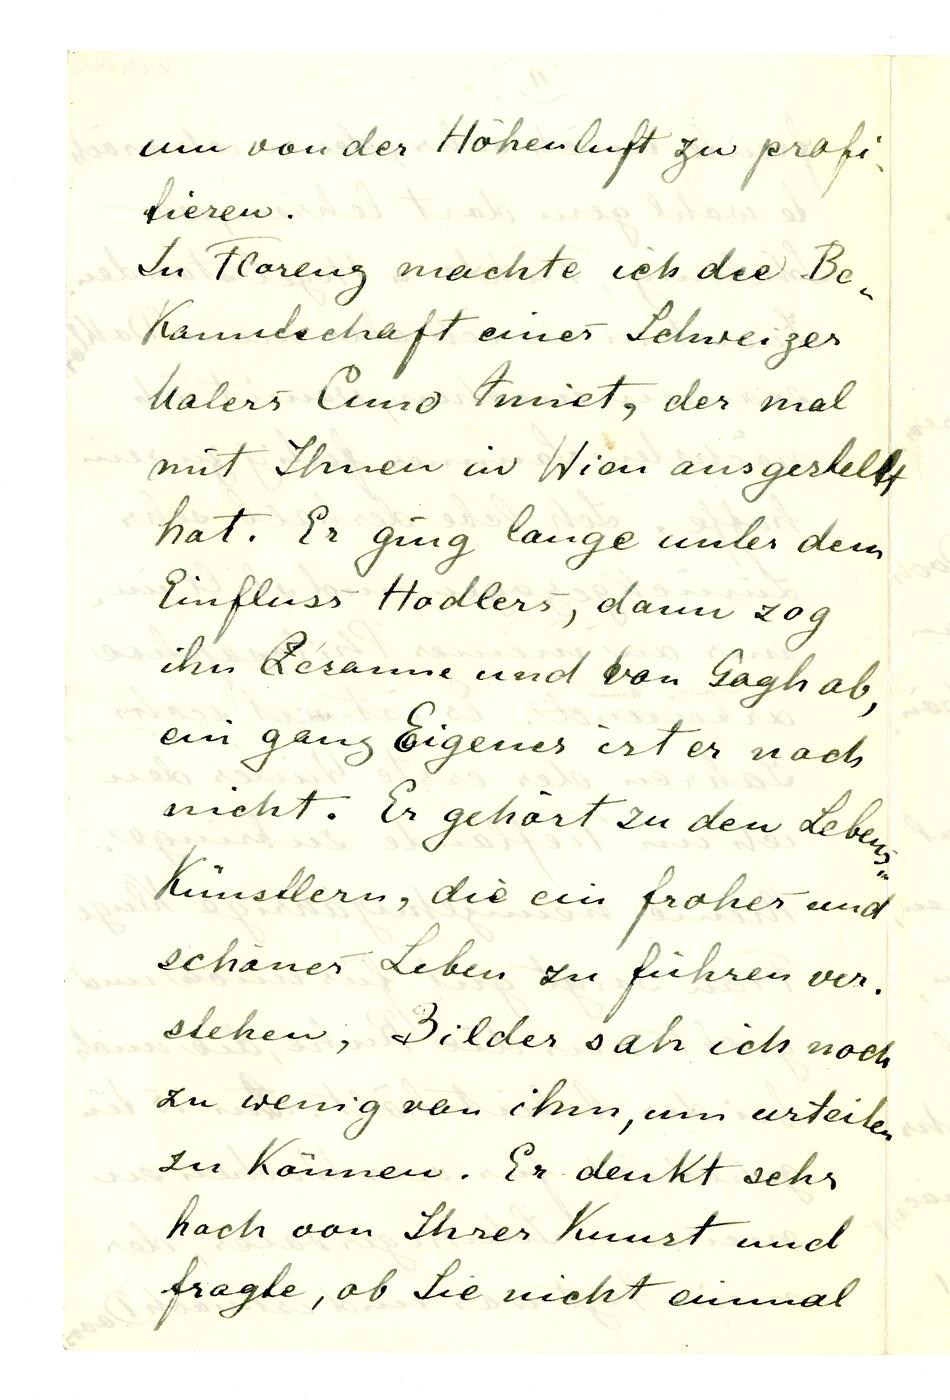 um von der Höhenluft zu profi-
tieren.
In Florenz machte ich die Be-
kanntschaft eines Schweizer
Malers Cuno Amiet, der mal
mit Ihnen in Wien ausgestellt
hat. Er ging lange unter dem
Einfluss Hodlers, dann zog
ihn Cézanne und van Gogh ab,
ein ganz Eigenes ist er noch
nicht. Er gehört zu den Lebens-
künstlern, die ein frohes und
schönes Leben zu führen ver-
stehen, Bilder sah ich noch
zu wenig von ihm, um urteilen
zu können. Er denkt sehr
hoch von Ihrer Kunst und
fragte, ob Sie nicht einmal